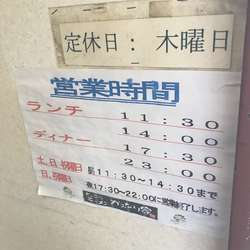 定休日: 木曜日
営業時間
ランチ 11:30
14:00
ディナー 17:30
23:00
土、日、祝曜日 昼11:30~14:30まで
日、祝曜 夜17:30~22:00に営業終了します。